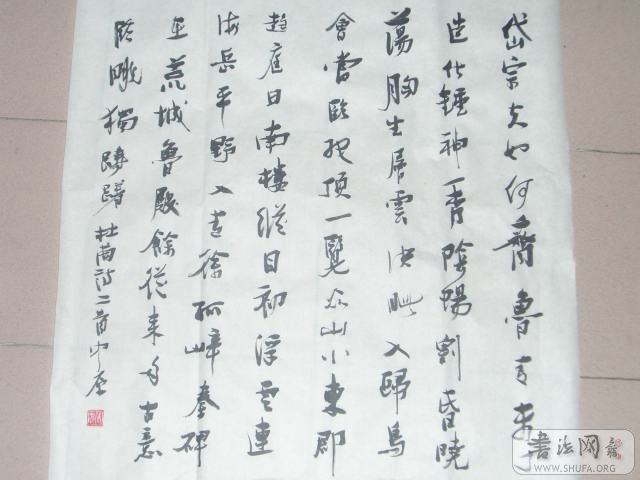 岱宗夫如何齊魯青未了
造化鍾神秀陰陽割昏曉
蕩胸生層雲決眥入歸鳥
會當臨絕頂一覽眾山小東郡
趨庭日南樓縱目初浮雲連
海岳平野入青徐孤嶂秦碑
在荒城魯殿餘從來多古意
臨眺獨躊躇 杜甫詩二首
書法网
WWW.SHUFA.ORG